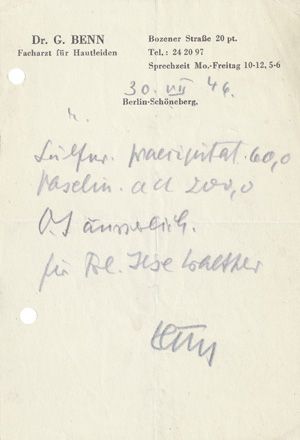 Dr. G. BENN
Facharzt für Hautleiden
Bozener Straße 20 pt.
Tel.: 24 20 97
Sprechzeit Mo.-Freitag 10-12, 5-6
30. VII 46.
Berlin-Schöneberg.
Sulfur. praecipitat. 60,0
Vaselin. ad 200,0
äusserlich.
für Frl. Ilse Walther
Benn